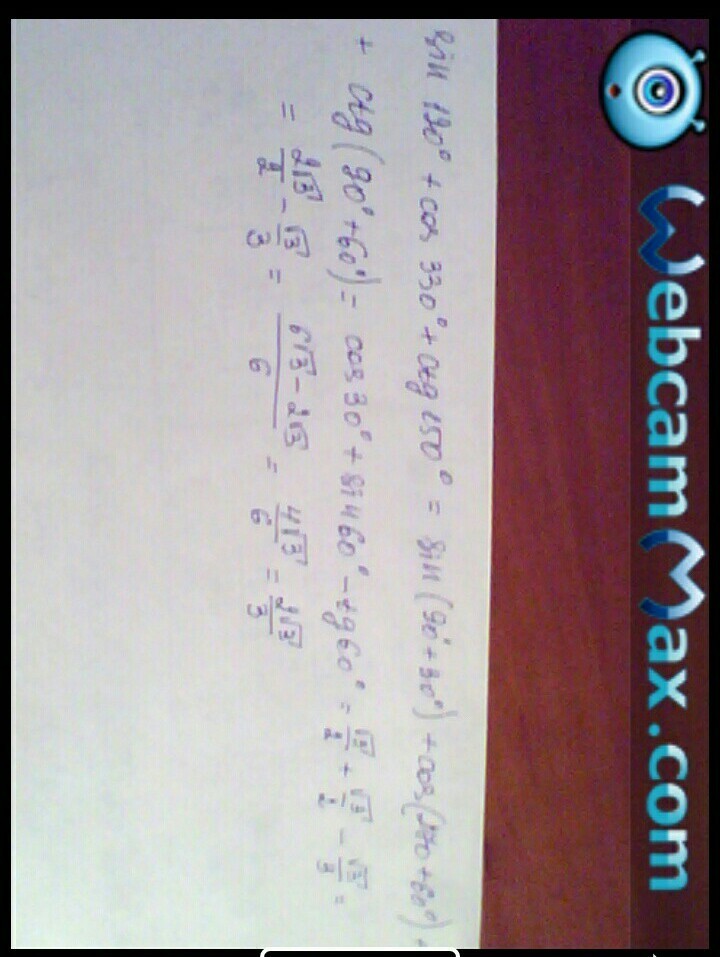 WebcamMax.com
sin 120° + cos 330° + ctg 150° = sin (90° + 30°) + cos(270 + 60°) +
+ ctg (90° + 60°) = cos 30° + sin 60° - tg 60° = √3/2 + √3/2 - √3/3 =
= 2√3/2 - √3/3 = 6√3 - 2√3/6 = 4√3/6 = 2√3/3